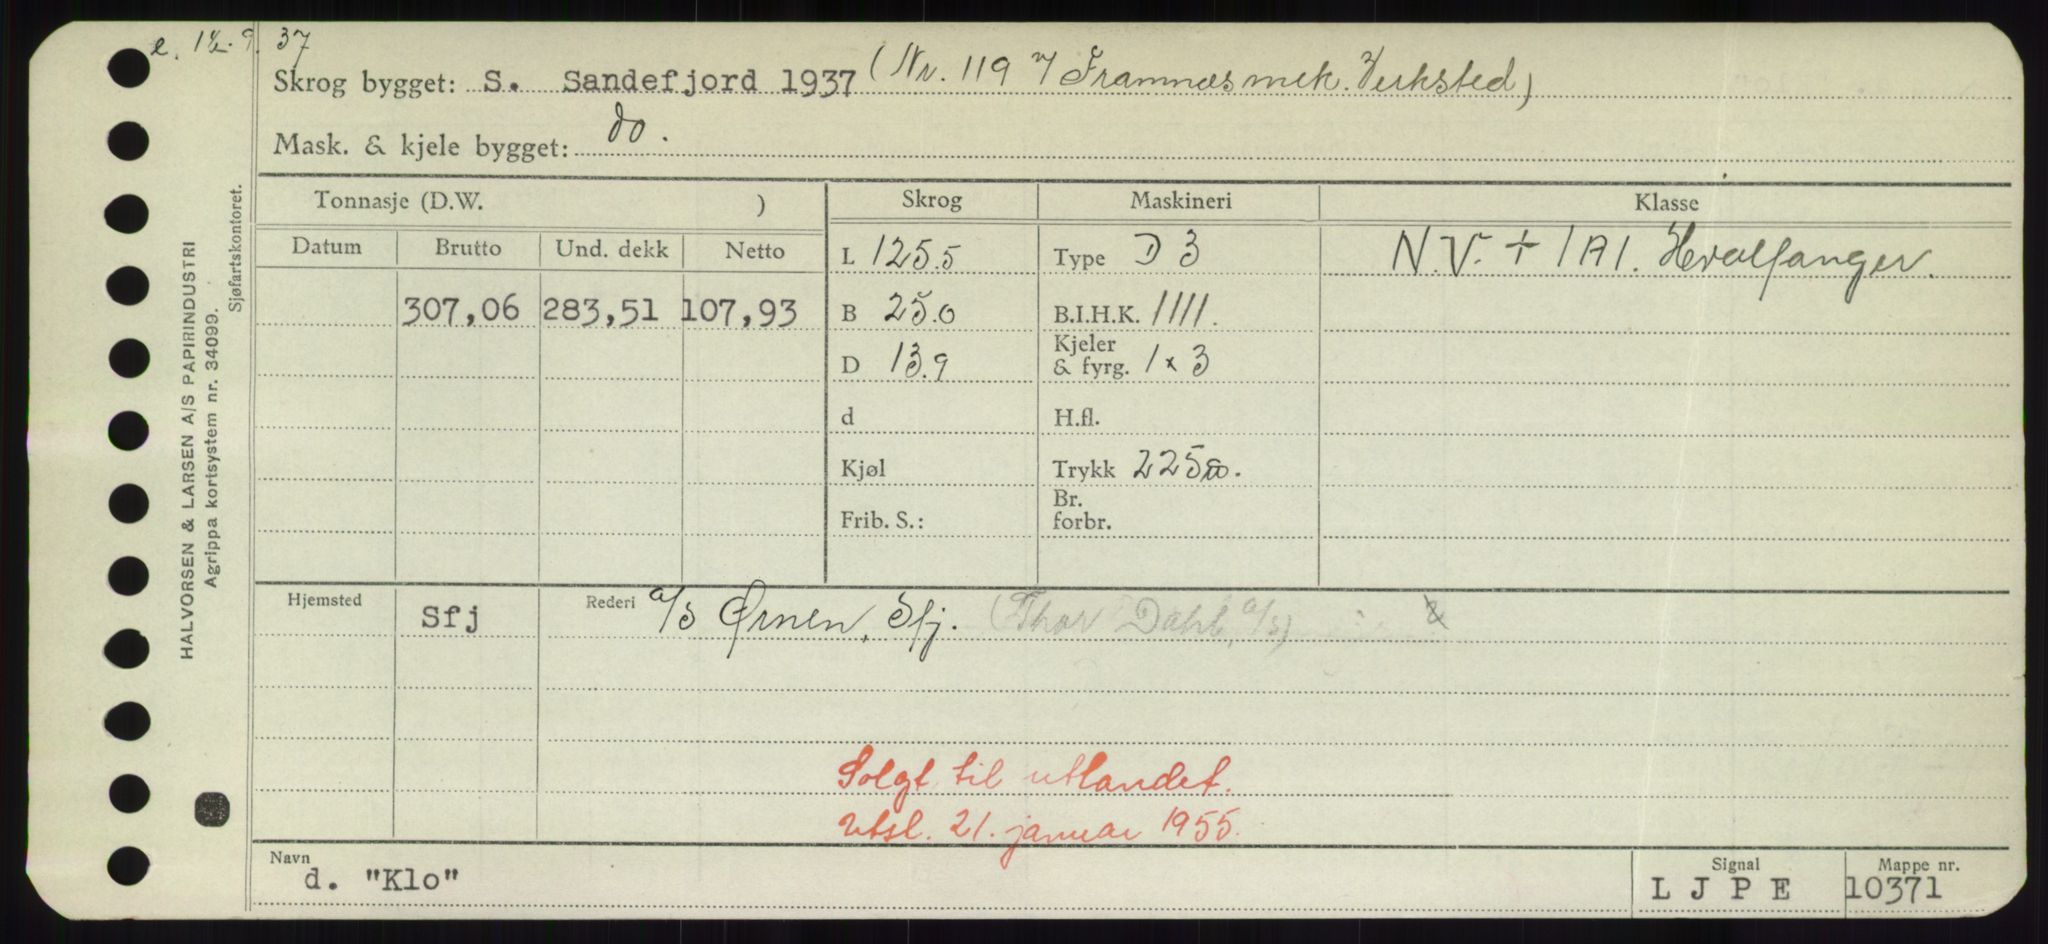 e. 1/2. 9. 37
Skrog bygget: S. Sandefjord 1937 (Nr. 119 v/ Framnæs mek. Verksted)
Mask. & kjele bygget: do.
Tonnasje (D.W. ) Skrog Maskineri Klasse
Datum Brutto Und. dekk Netto L 125.5 Type D 3 N.V. + 1A1. Hvalfanger.
307,06 283,51 107,93 B 25.0 B.I.H.K. 1111.
D 13.9 Kjeler & fyrg. 1 x 3
d H.fl.
Kjøl Trykk 225
Frib. S.: Br. forbr.
Hjemsted Sfj Rederi a/s Ørnen, Sfj. (Thor Dahl, a/s)
Solgt til utlandet.
Utsl. 21. januar 1955.
Navn d. "Klo" Signal L J P E Mappe nr. 10371
HALVORSEN & LARSEN A/S PAPIRINDUSTRI
Agrippa kortsystem nr. 34099.
Sjøfartskontoret.